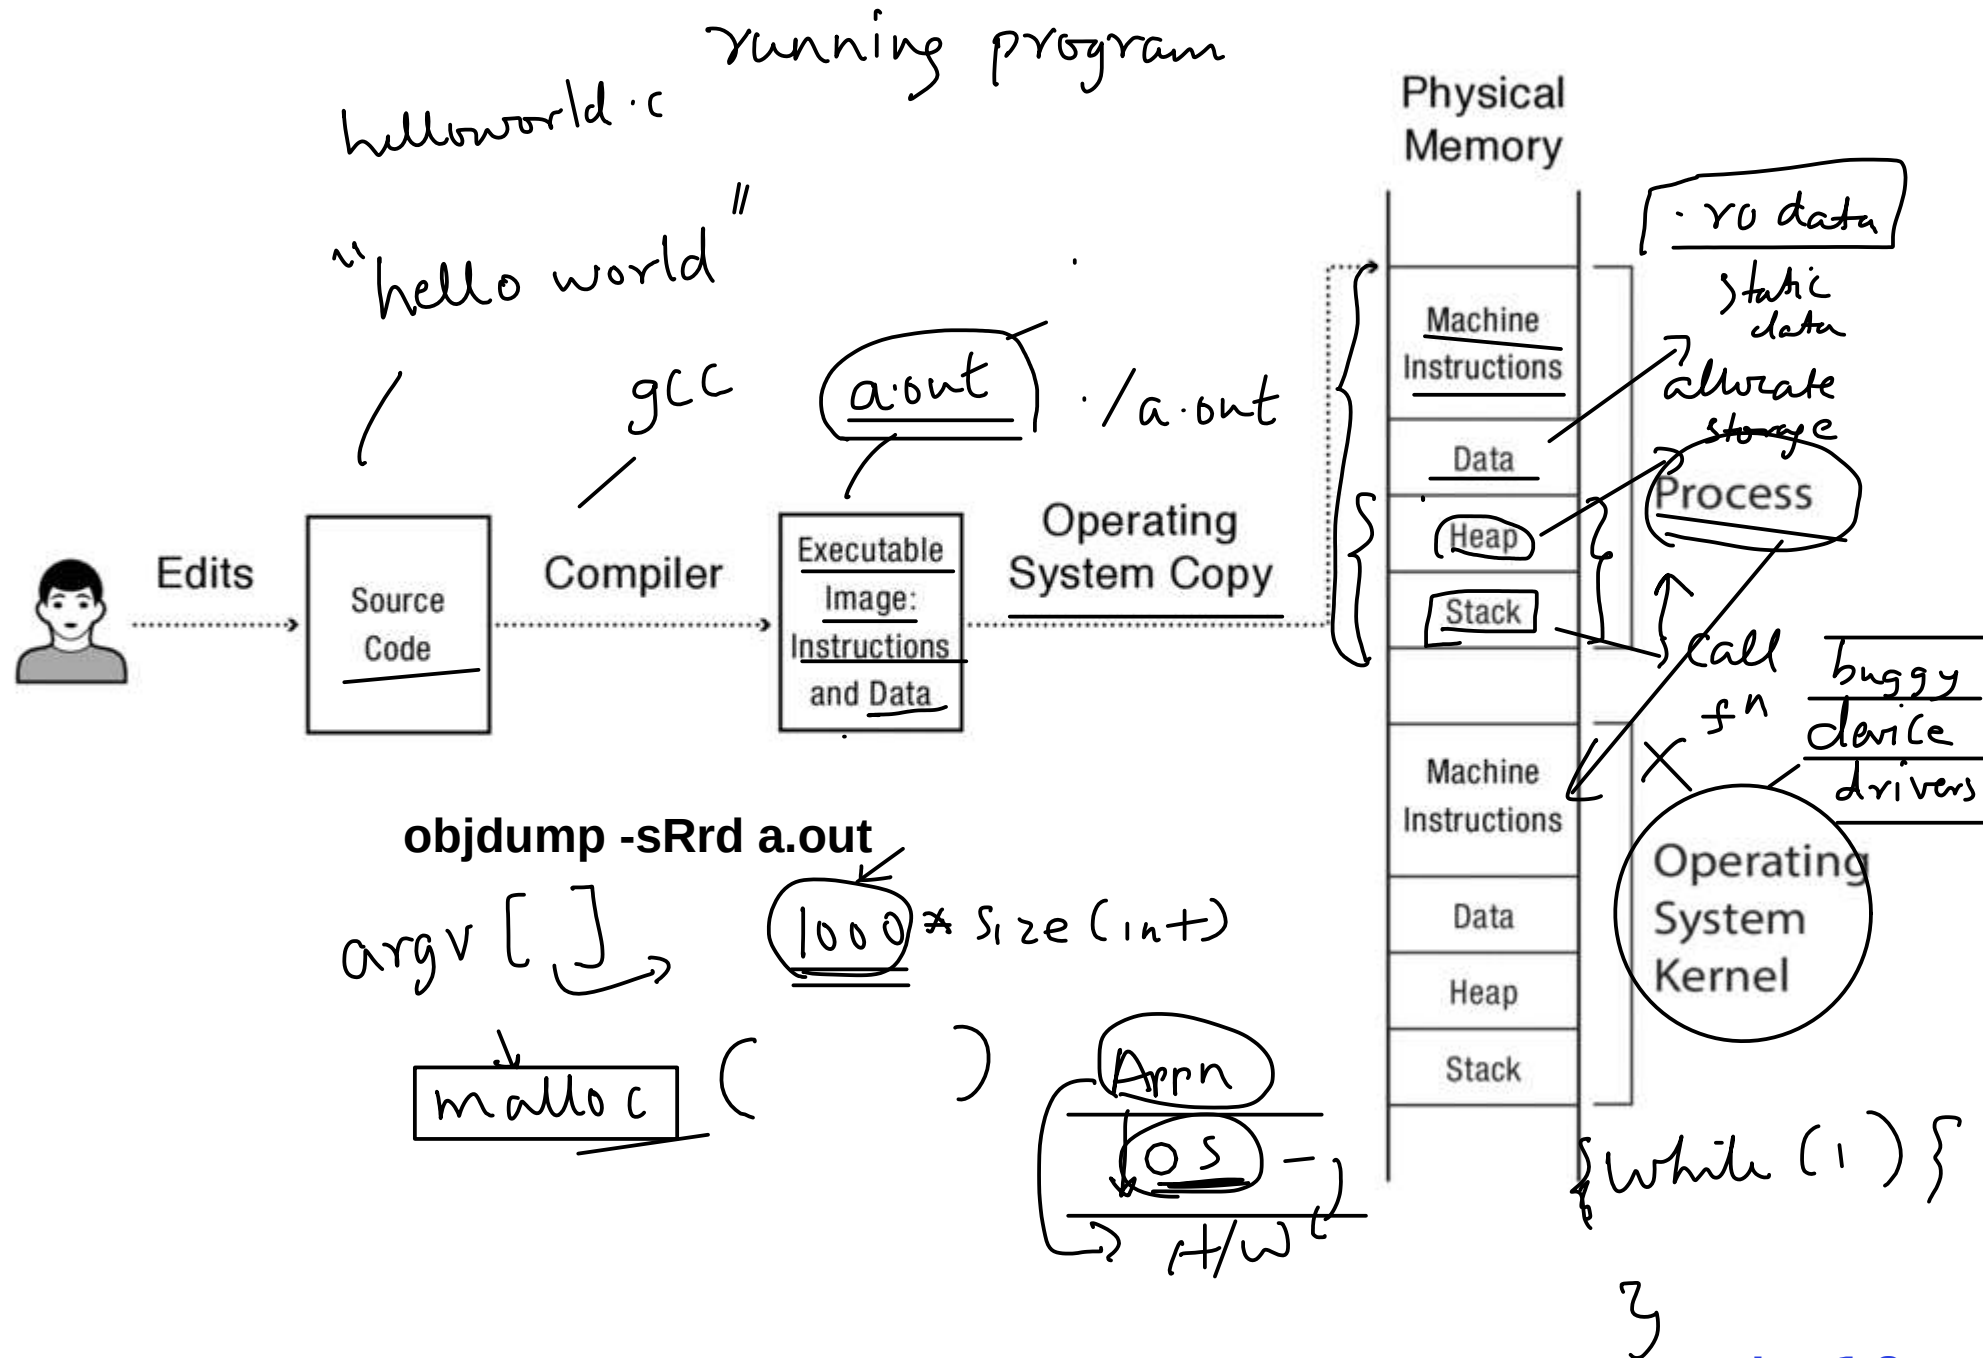 running program
helloworld.c
"hello world"
gcc
a.out
./a.out
Edits
Source
Code
Compiler
Executable
Image:
Instructions
and Data
Operating
System Copy
Physical
Memory
Machine
Instructions
Data
Heap
Stack
Machine
Instructions
Data
Heap
Stack
.rodata
static
data
allocate
storage
Process
call
fn
buggy
device
drivers
Operating
System
Kernel
objdump -sRrd a.out
argv []
1000 * size (int)
malloc ( )
Appn
OS
H/W
while (1) {
}